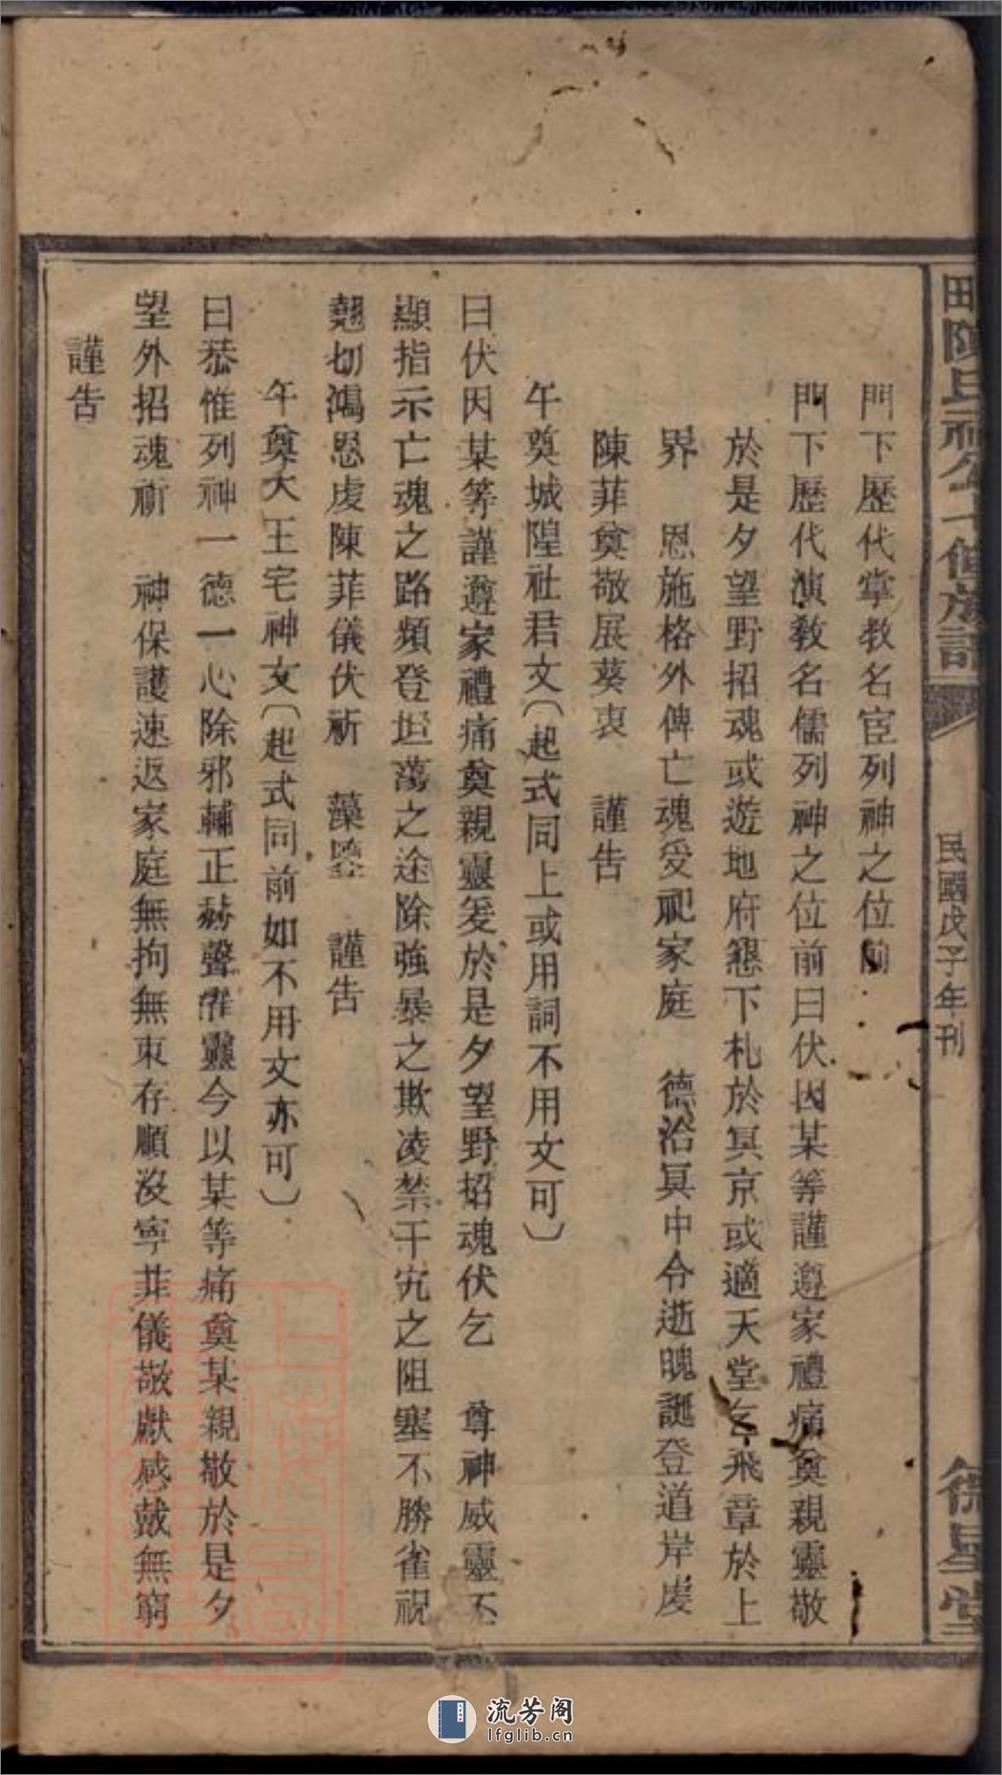 田陳氏祉公十修族譜
民國戊子年刊
星堂
門下歷代掌教名宦列神之位前
門下歷代演敎名儒列神之位前曰伏因某等謹遵家禮痛奠親靈敬
於是夕望野招魂或遊地府懇下札於冥京或適天堂乞飛章於上
界 恩施格外俾亡魂受祀家庭 德洽冥中令逝魄誕登道岸虔
陳菲奠敬展葵衷 謹告
午奠城隍社君文〔起式同上或用詞不用文可〕
曰伏因某等謹遵家禮痛奠親靈爰於是夕望野招魂伏乞 尊神威靈丕
顯指示亡魂之路頻登坦蕩之途除強暴之欺凌禁干宄之阻塞不勝雀祝
翹切鴻恩虔陳菲儀伏祈 藻鑒 謹告
午奠大王宅神文〔起式同前如不用文亦可〕
曰恭惟列神一德一心除邪輔正赫聲濯靈今以某等痛奠某親敬於是夕
望外招魂祈 神保護速返家庭無拘無束存順沒寧菲儀敬獻感戴無窮
謹告
流芳阁
lfglib.cn